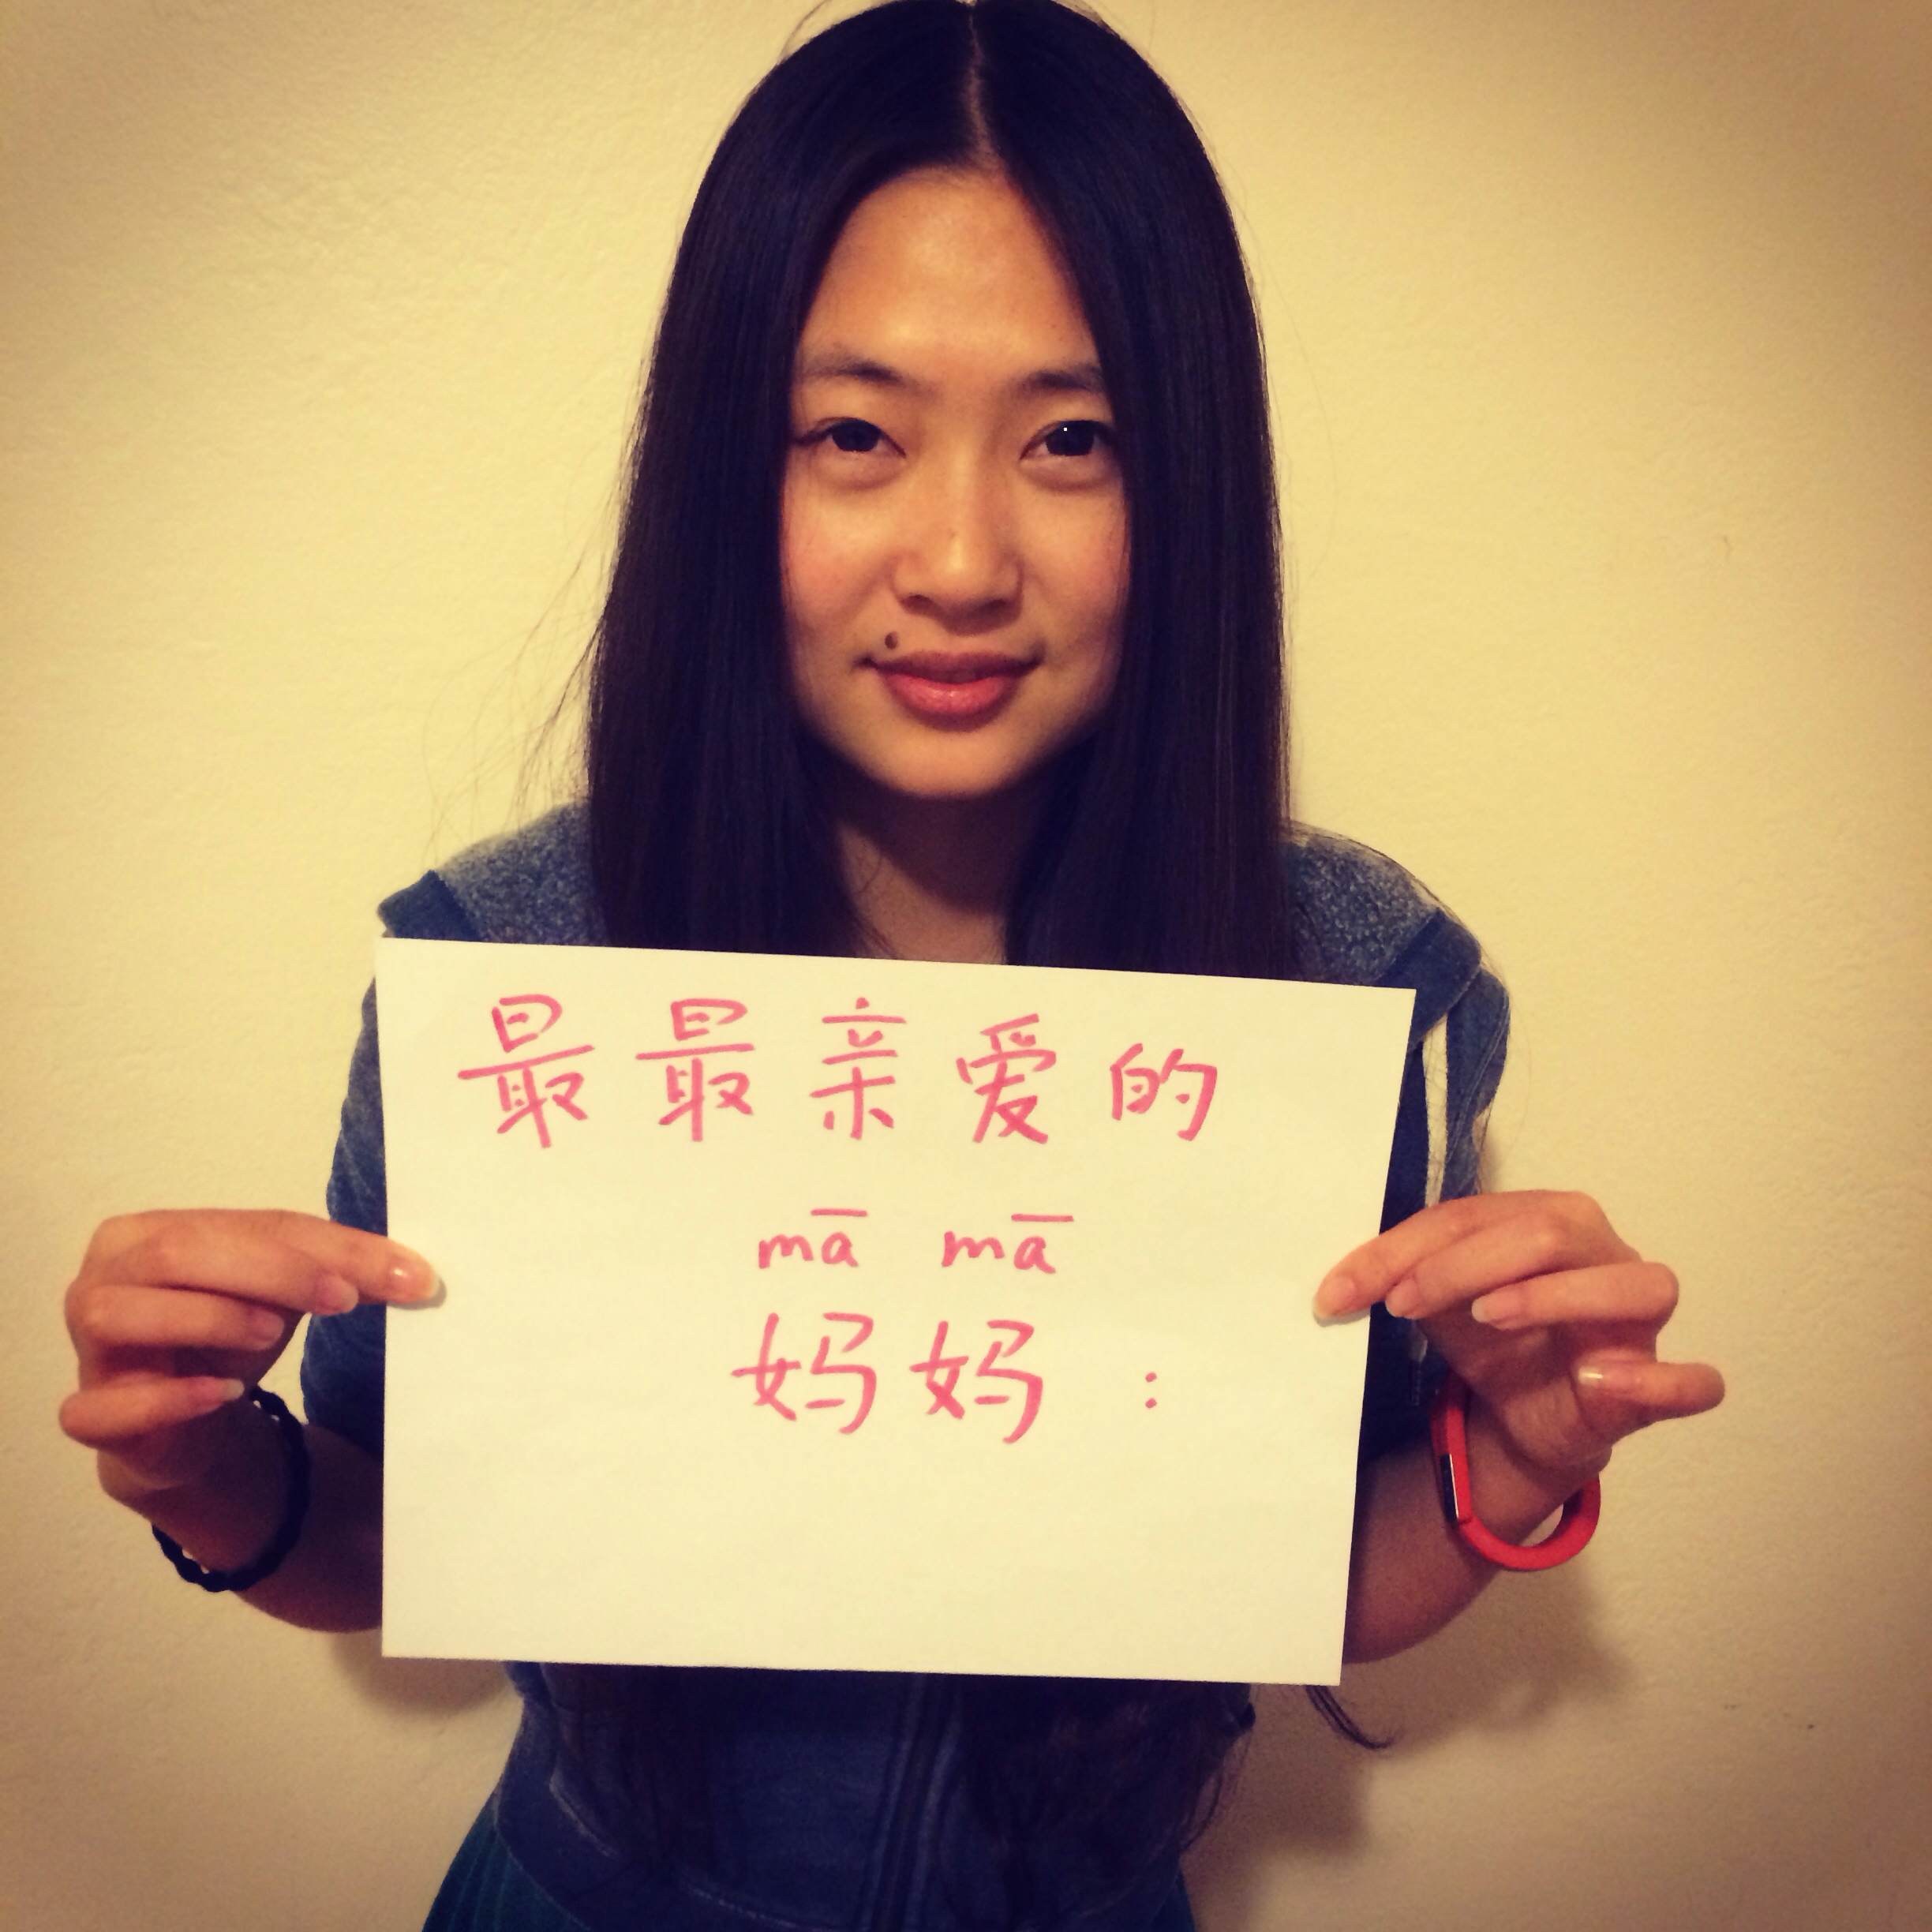 最最亲爱的
mā mā
妈妈：